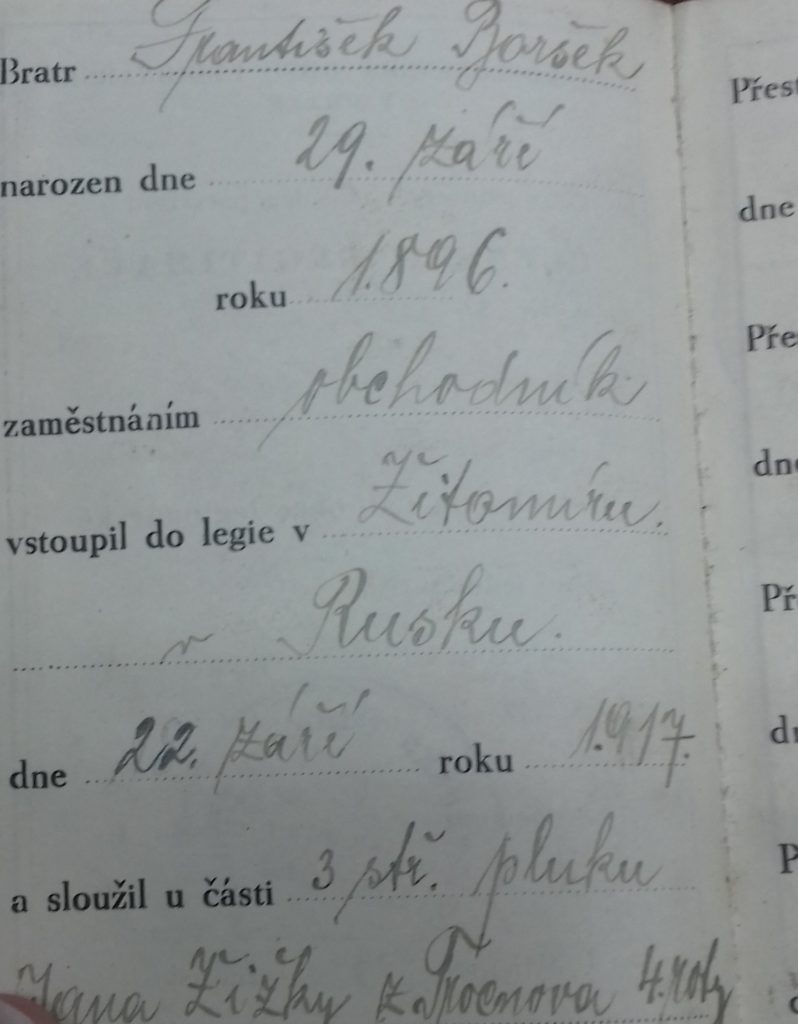 Bratr František Boršek
narozen dne 29. září
roku 1896.
zaměstnáním obchodník
vstoupil do legie v Žitomíru.
v Rusku.
dne 22. září roku 1917.
a sloužil u části 3 stř. pluku
Jana Žižky z Trocnova 4. roty
Přes
dne
Pře
dn
Př
d
P